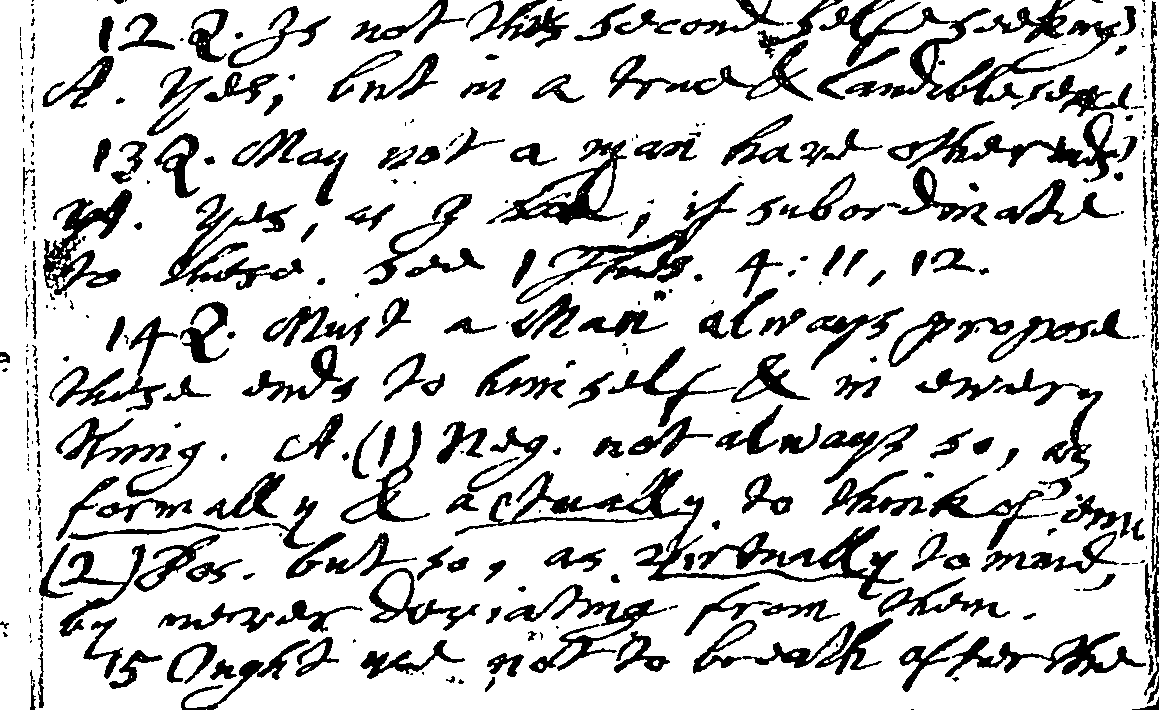 12 Q. Is not this second selfe seeking?
A. Yes; but in a true & Laudible sense.
13 Q. May not a man have other ends?
A. Yes, as I said; if subordinate
to these. See 1 Thes. 4:11, 12.
14 Q. Must a Man always propose
these ends to himself & in every
thing. A. (1) Neg. not always so, as
formally & actually to think of 'em
(2) Pos. but so, as virtually to mind,
by never deviating from them.
15 Ought we not to breath after the